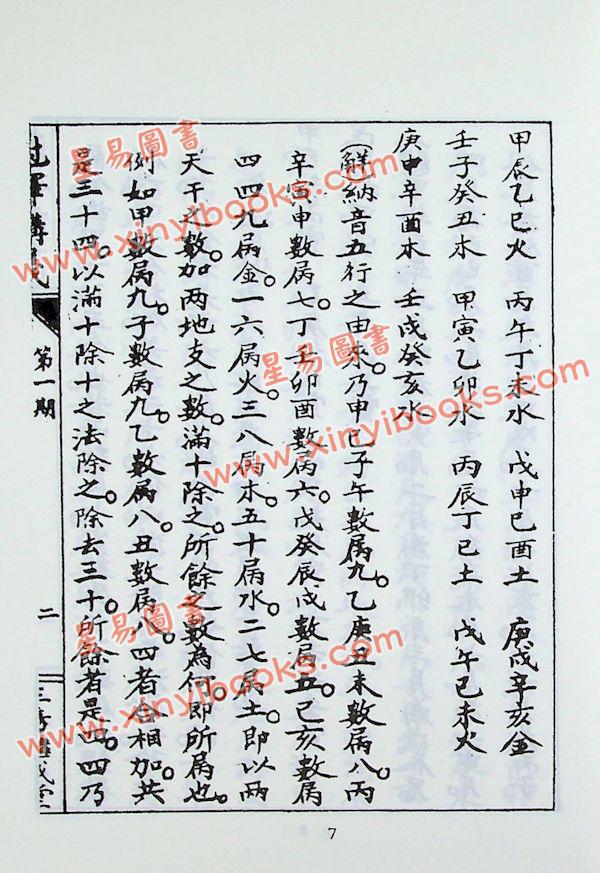 甲辰乙巳火　丙午丁未水　戊申己酉土　庚戌辛亥金
壬子癸丑木　甲寅乙卯水　丙辰丁巳土　戊午己未火
庚申辛酉木　壬戌癸亥水
(解)納音五行之由來。乃甲己子午數屬九。乙庚丑未數屬八。丙
辛寅申數屬七。丁壬卯酉數屬六。戊癸辰戌數屬五。己亥數屬
四。四九屬金。一六屬火。三八屬木。五十屬水。二七屬土。即以兩
天干之數。加兩地支之數。滿十除之。所餘之數為何。即所屬也。
例如甲數屬九。子數屬九。乙數屬八。丑數屬八。四者合相加。共
是三十四。以滿十除十之法除之。除去三十。所餘者是四。四乃
講義
第一期
二
三
7
星易圖書
www.xinyibooks.com
星易圖書
www.xinyibooks.com
星易圖書
www.xinyibooks.com